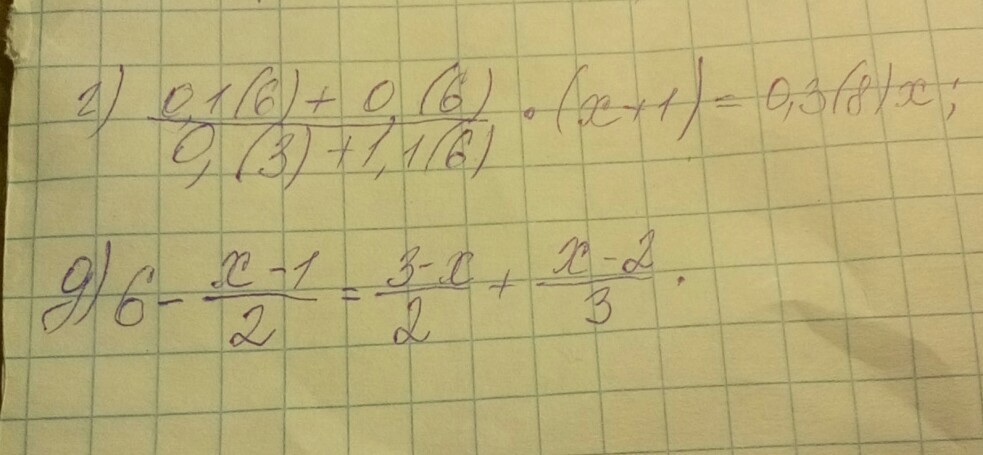 г) (0,1(6) + 0,(6))/(0,(3) + 1,1(6)) • (x+1) = 0,3(8)x;
д) 6 - (x-1)/2 = (3-x)/2 + (x-2)/3.